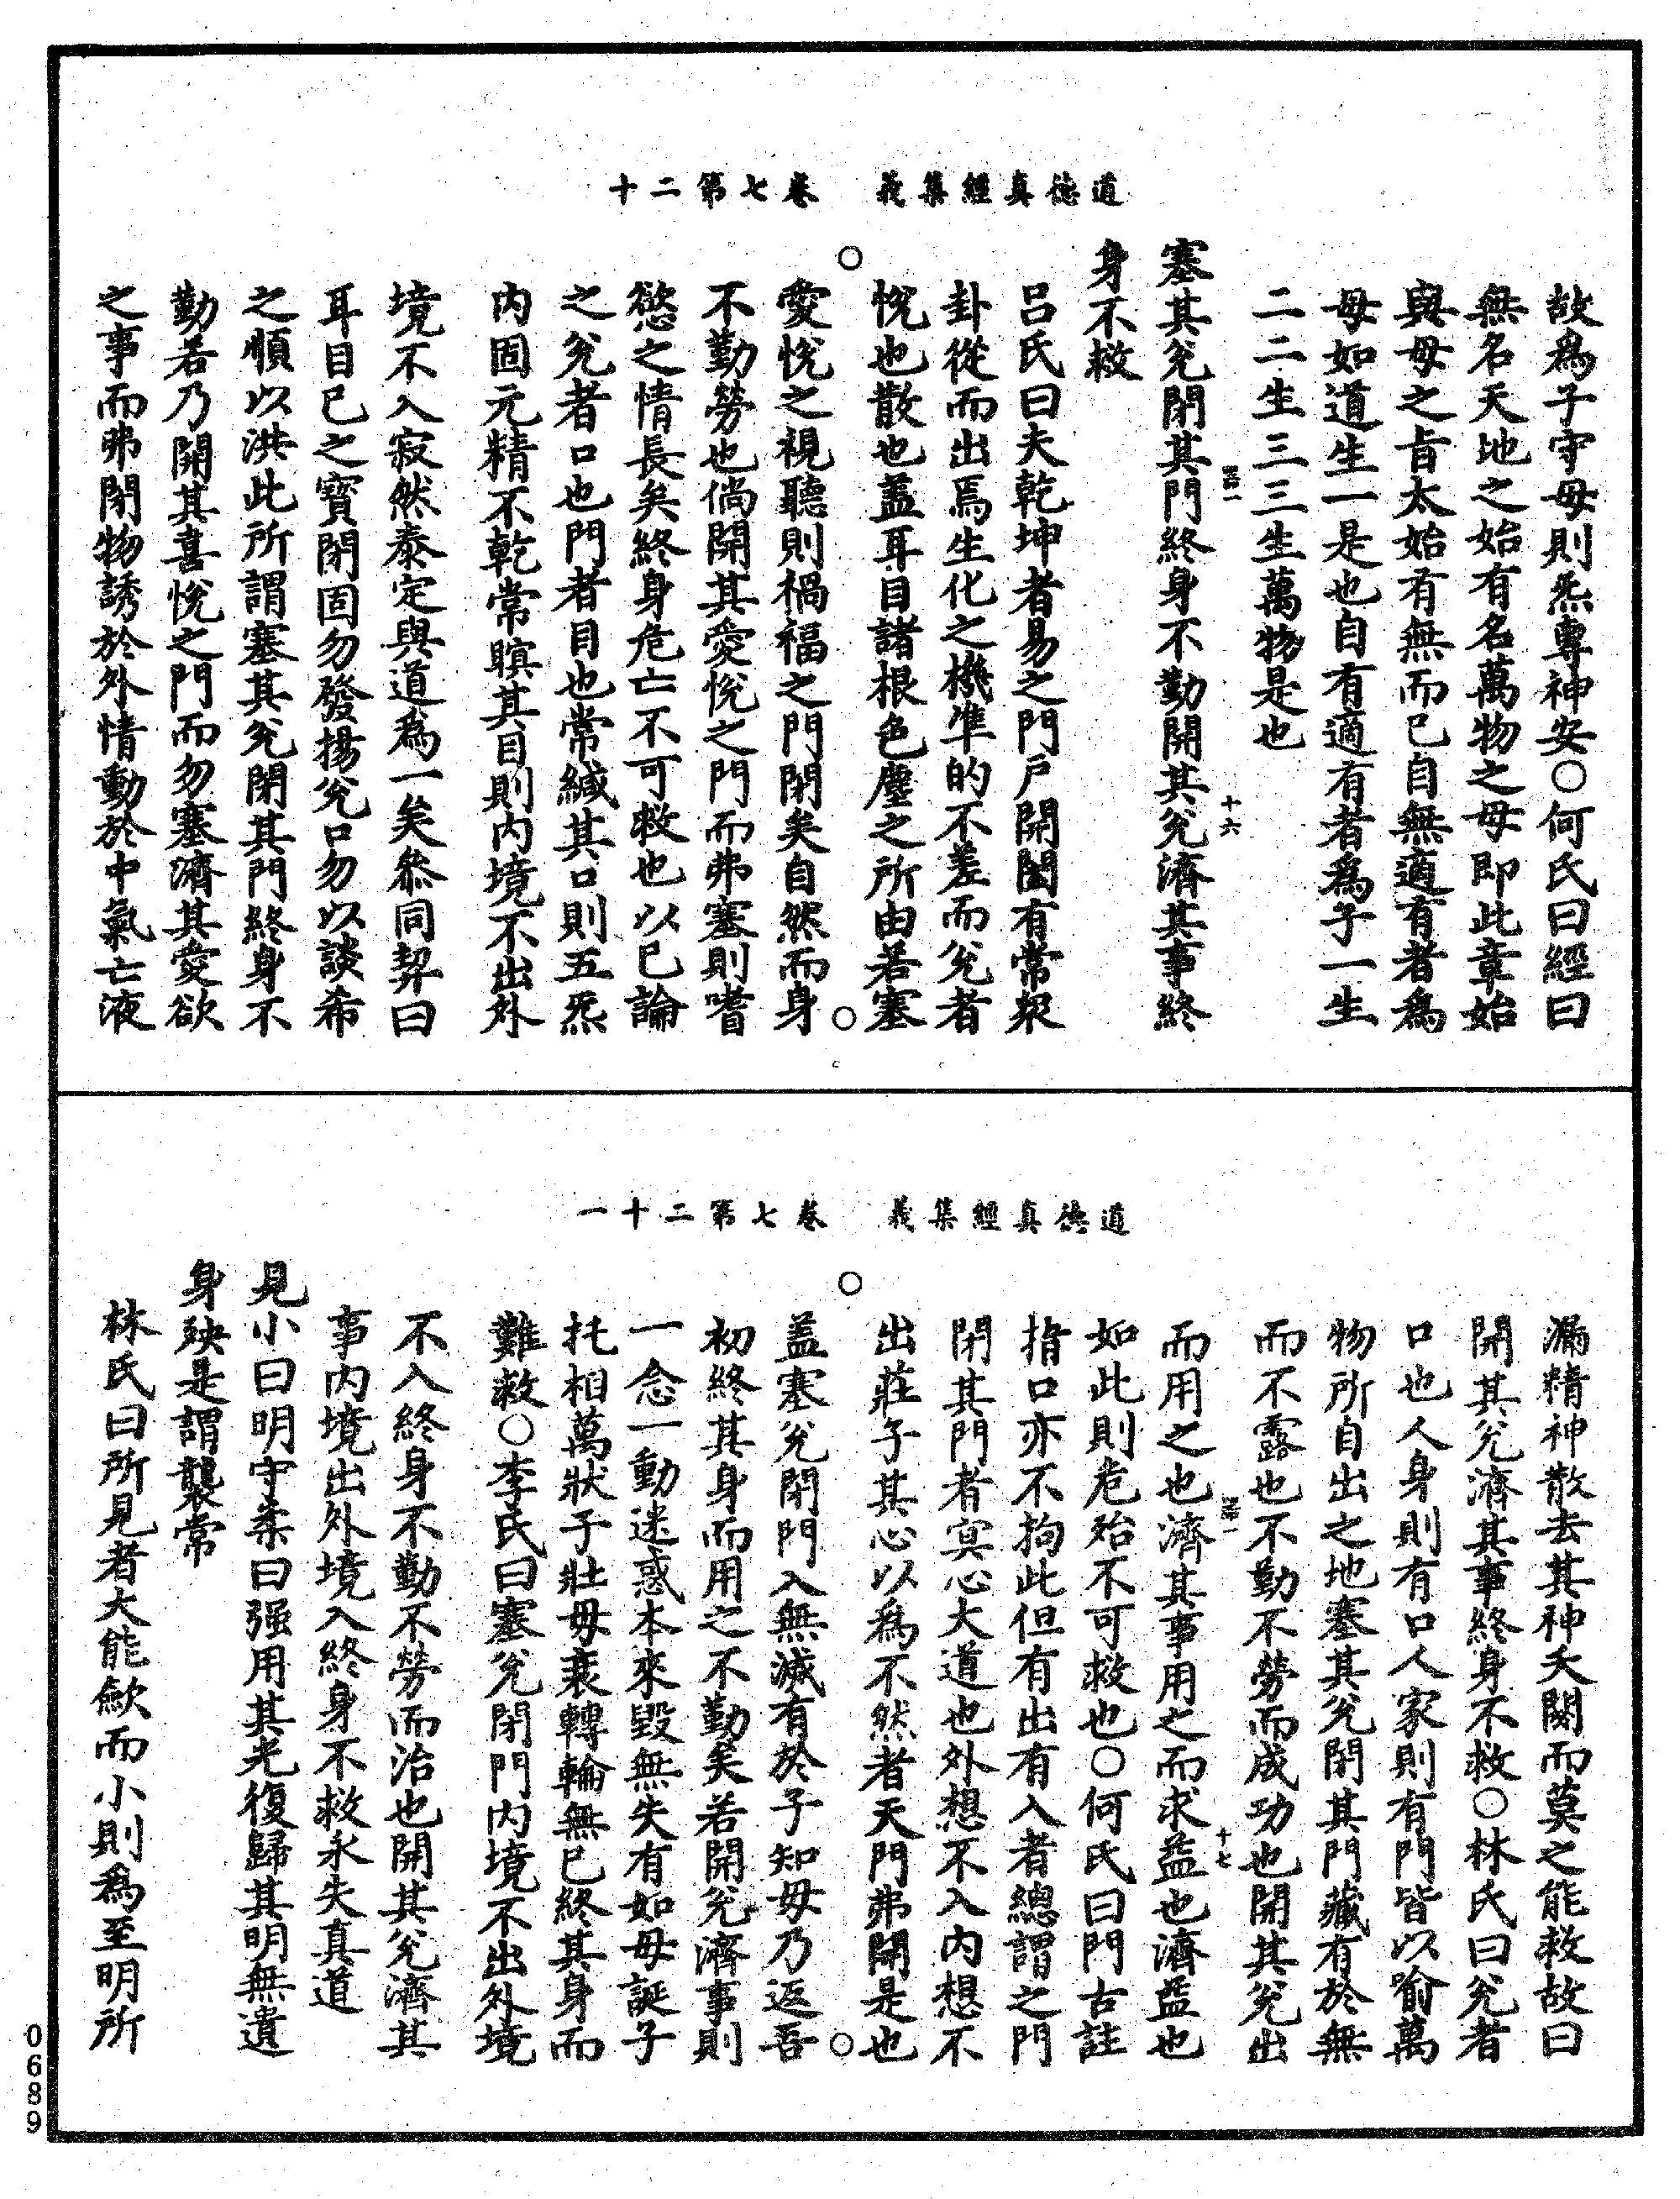 道德真經集義　卷七第二十
故為子守母則炁專神安○何氏曰經曰
無名天地之始有名萬物之母即此章始
與母之旨太始有無而已自無適有者為
母如道生一是也自有適有者為子一生
二二生三三生萬物是也
塞其兊閉其門終身不勤開其兊濟其事終
身不救
呂氏曰夫乾坤者易之門戶開闔有常衆
卦從而出焉生化之機準的不差而兊者
悅也散也蓋耳目諸根色塵之所由若塞
愛悅之視聽則禍福之門閉矣自然而身
不勤勞也倘開其愛悅之門而弗塞則嗜
慾之情長矣終身危亡不可救也以已論
之兊者口也門者目也常緘其口則五炁
内固元精不乾常瞑其目則内境不出外
境不入寂然泰定與道為一矣叅同契曰
耳目已之寶閉固勿發揚兊口勿以談希
之順以洪此所謂塞其兊閉其門終身不
勤若乃開其喜悅之門而勿塞濟其愛欲
之事而弗閉物誘於外情動於中氣亡液
十六
道德真經集義　卷七第二十一
漏精神散去其神夭閼而莫之能救故曰
開其兊濟其事終身不救○林氏曰兊者
口也人身則有口人家則有門皆以喻萬
物所自出之地塞其兊閉其門藏有於無
而不露也不勤不勞而成功也開其兊出
而用之也濟其事用之而求益也濟益也
如此則危殆不可救也○何氏曰門古註
指口亦不拘此但有出有入者總謂之門
閉其門者冥心大道也外想不入内想不
出莊子其心以為不然者天門弗開是也
蓋塞兊閉門入無滅有於子知母乃返吾
初終其身而用之不勤矣若開兊濟事則
一念一動迷惑本來毀無失有如母誕子
托相萬狀子壯母衰轉輪無已終其身而
難救○李氏曰塞兊閉門内境不出外境
不入終身不勤不勞而治也開其兊濟其
事内境出外境入終身不救永失真道
見小曰明守柔曰强用其光復歸其明無遺
身殃是謂襲常
林氏曰所見者大能歛而小則為至明所
十七
0689